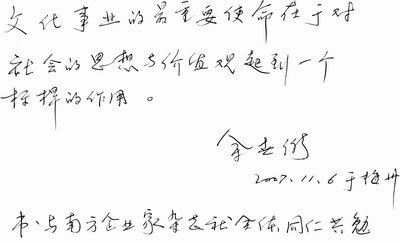 文化事业的最重要使命在于对
社会的思想与价值观起到一个
标杆的作用。
2007.11.6于梅州
书与南方企业家杂志社全体同仁共勉